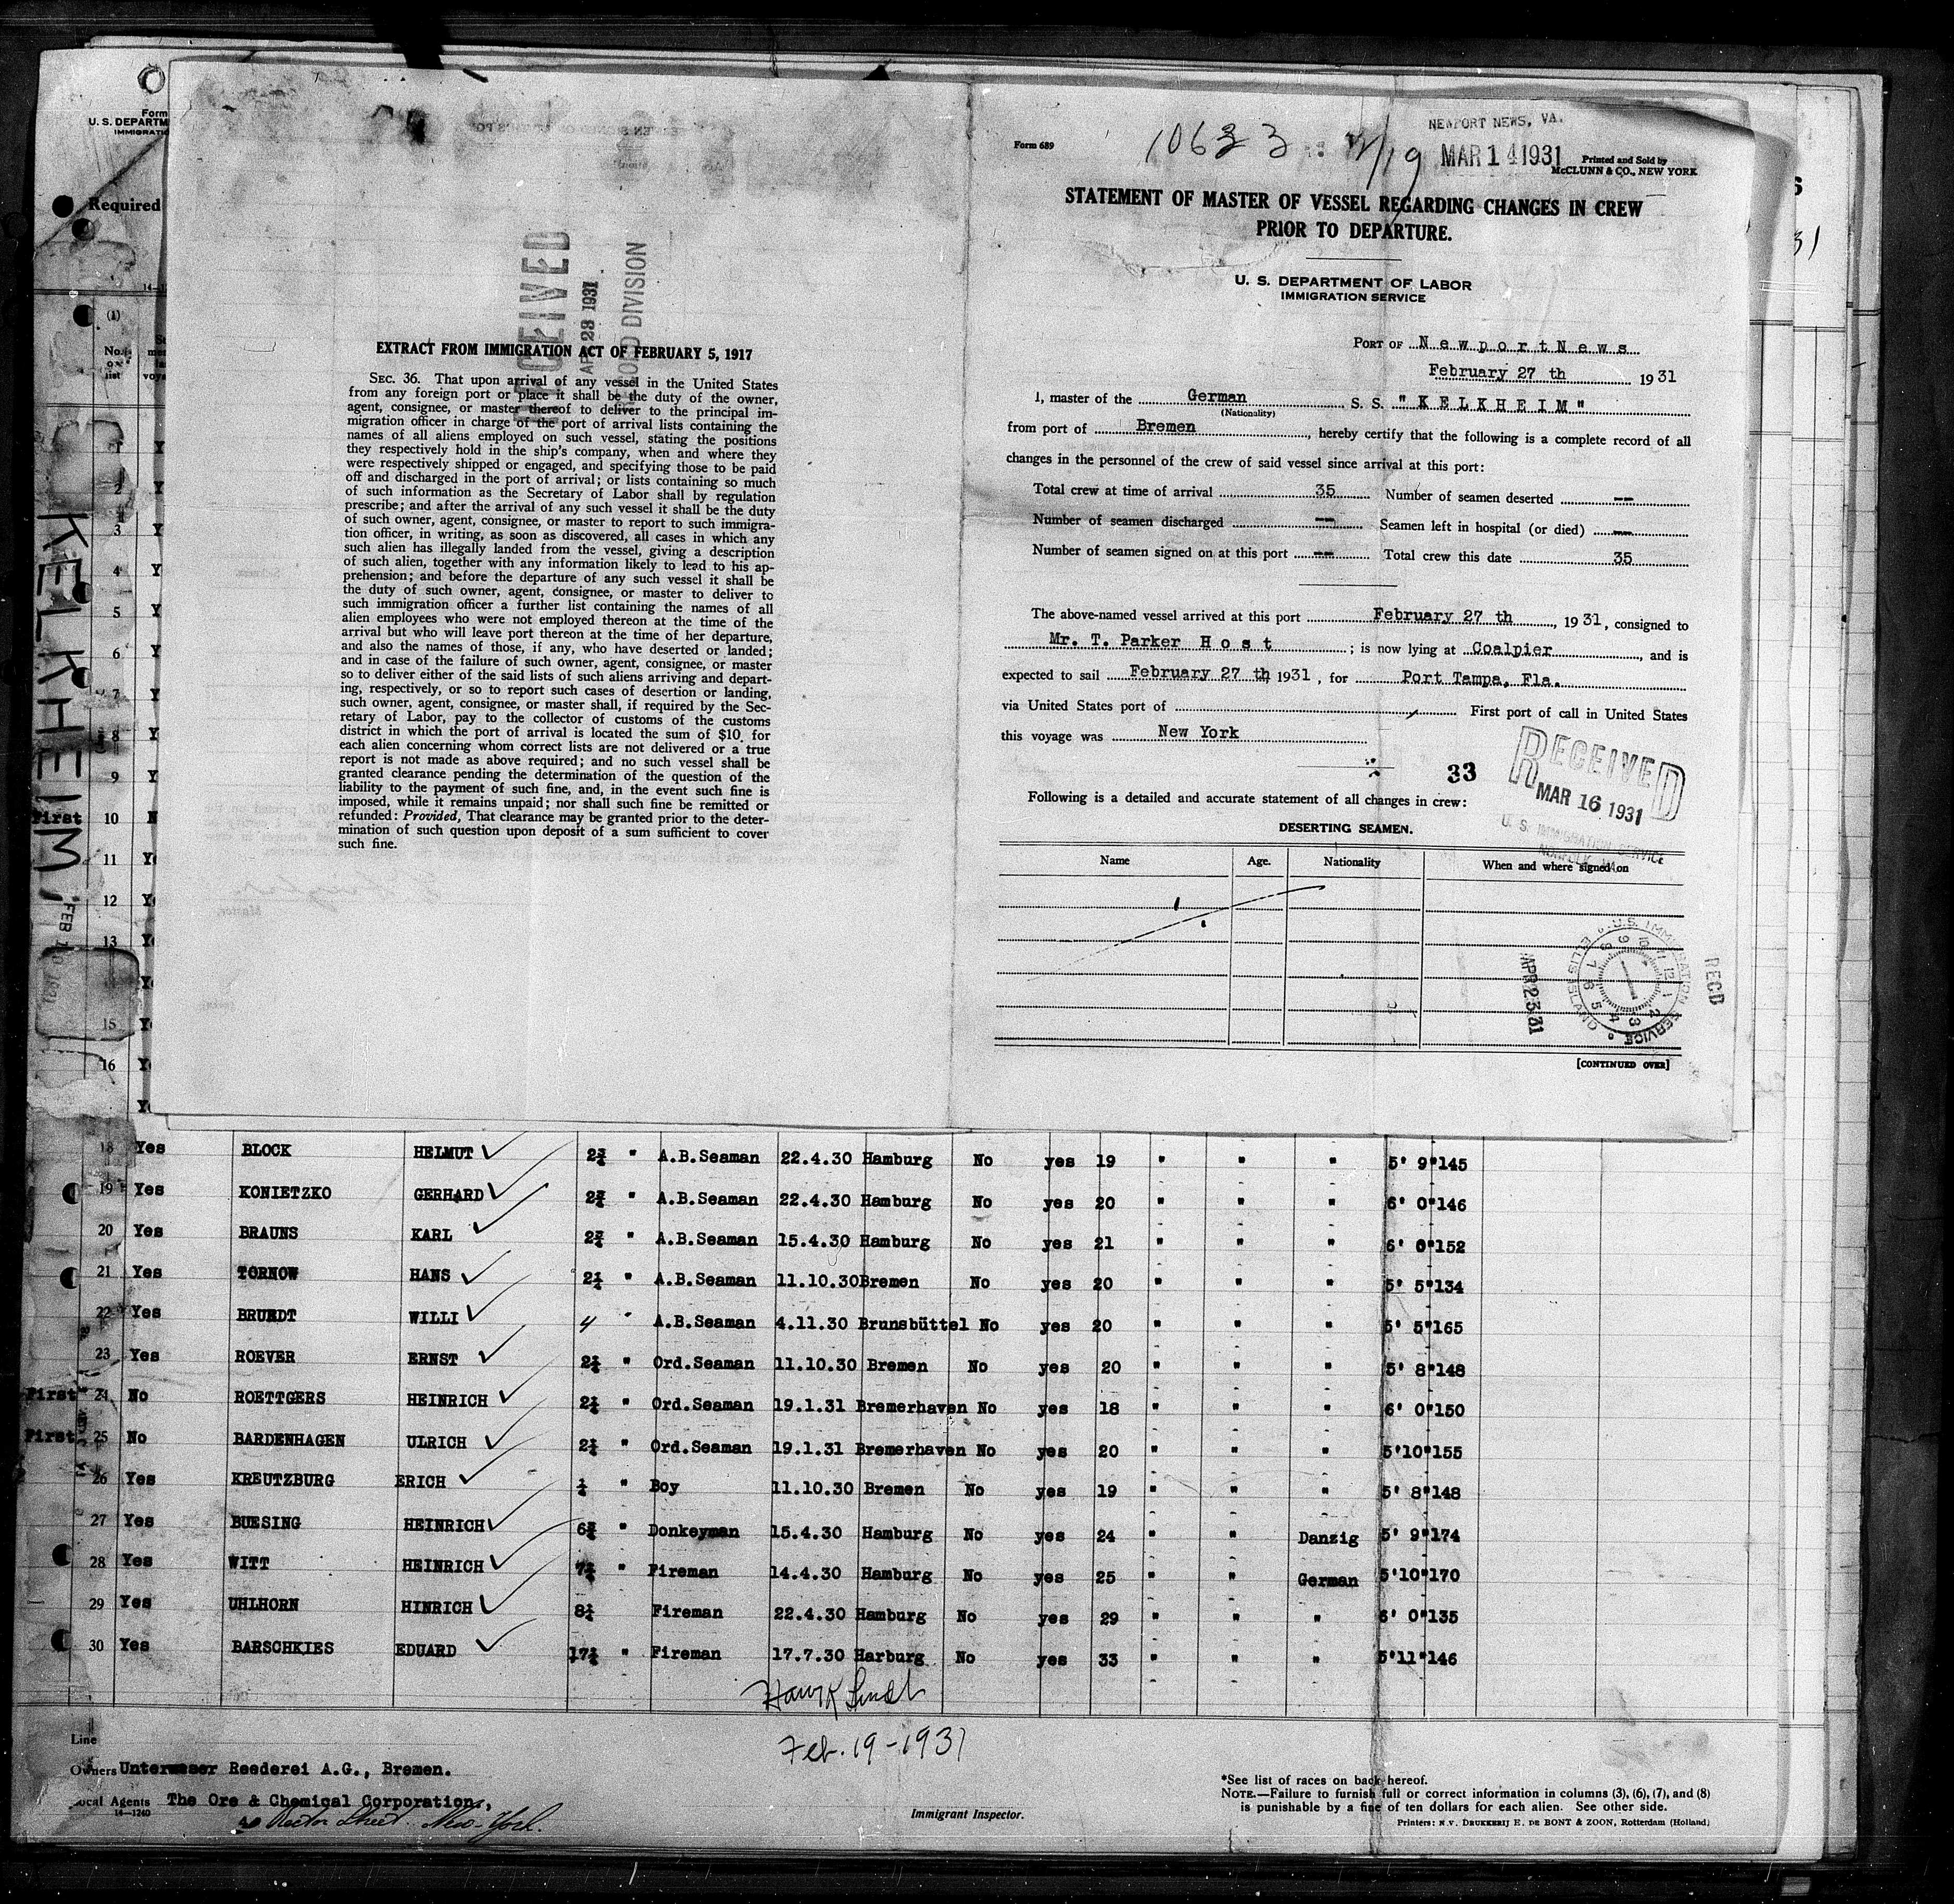 Form
U. S. DEPARTM
IMMIGRATI
Required
(1)
No.
on
list
KELKHEIM,
FEB
1
2
3
4
5
6
7
8
9
First 10
11
12
13
15
16
RECEIVED
APR 23 1931
RECORD DIVISION
EXTRACT FROM IMMIGRATION ACT OF FEBRUARY 5, 1917
SEC. 36. That upon arrival of any vessel in the United States
from any foreign port or place it shall be the duty of the owner,
agent, consignee, or master thereof to deliver to the principal im-
migration officer in charge of the port of arrival lists containing the
names of all aliens employed on such vessel, stating the positions
they respectively hold in the ship's company, when and where they
were respectively shipped or engaged, and specifying those to be paid
off and discharged in the port of arrival; or lists containing so much
of such information as the Secretary of Labor shall by regulation
prescribe; and after the arrival of any such vessel it shall be the duty
of such owner, agent, consignee, or master to report to such immigra-
tion officer, in writing, as soon as discovered, all cases in which any
such alien has illegally landed from the vessel, giving a description
of such alien, together with any information likely to lead to his ap-
prehension; and before the departure of any such vessel it shall be
the duty of such owner, agent, consignee, or master to deliver to
such immigration officer a further list containing the names of all
alien employees who were not employed thereon at the time of the
arrival but who will leave port thereon at the time of her departure,
and also the names of those, if any, who have deserted or landed;
and in case of the failure of such owner, agent, consignee, or master
so to deliver either of the said lists of such aliens arriving and depart-
ing, respectively, or so to report such cases of desertion or landing,
such owner, agent, consignee, or master shall, if required by the Sec-
retary of Labor, pay to the collector of customs of the customs
district in which the port of arrival is located the sum of $10 for
each alien concerning whom correct lists are not delivered or a true
report is not made as above required; and no such vessel shall be
granted clearance pending the determination of the question of the
liability to the payment of such fine, and, in the event such fine is
imposed, while it remains unpaid; nor shall such fine be remitted or
refunded: Provided, That clearance may be granted prior to the deter-
mination of such question upon deposit of a sum sufficient to cover
such fine.
NEWPORT NEWS, VA.
Form 689
MAR 14 1931
Printed and Sold by
McCLUNN & CO., NEW YORK
STATEMENT OF MASTER OF VESSEL REGARDING CHANGES IN CREW
PRIOR TO DEPARTURE.
U. S. DEPARTMENT OF LABOR
IMMIGRATION SERVICE
PORT OF NewportNews
February 27 th 1931
I, master of the German S. S. "KELKHEIM"
(Nationality)
from port of Bremen, hereby certify that the following is a complete record of all
changes in the personnel of the crew of said vessel since arrival at this port:
Total crew at time of arrival 35 Number of seamen deserted --
Number of seamen discharged -- Seamen left in hospital (or died) --
Number of seamen signed on at this port -- Total crew this date 35
The above-named vessel arrived at this port February 27 th, 1931, consigned to
Mr. T. Parker Host; is now lying at Coalpier, and is
expected to sail February 27 th 1931, for Port Tampa, Fla.
via United States port of First port of call in United States
this voyage was New York
33
RECEIVED
MAR 16 1931
U. S. IMMIGRATION SERVICE
NORFOLK, VA.
Following is a detailed and accurate statement of all changes in crew:
DESERTING SEAMEN.
Name Age. Nationality When and where signed on
U.S. IMMIGRATION SERVICE
ELLIS ISLAND
RECD
APR 23 31
[CONTINUED OVER]
18 Yes BLOCK HELMUT 2¾ " A.B.Seaman 22.4.30 Hamburg No yes 19 " " " 5' 9" 145
19 Yes KONIETZKO GERHARD 2¾ " A.B.Seaman 22.4.30 Hamburg No yes 20 " " " 6' 0" 146
20 Yes BRAUNS KARL 2¾ " A.B.Seaman 15.4.30 Hamburg No yes 21 " " " 6' 0" 152
21 Yes TORNOW HANS " A.B.Seaman 11.10.30 Bremen No yes 20 " " " 5' 5" 134
22 Yes WILLI 4 " A.B.Seaman 4.11.30 Brunsbüttel No yes 20 " " " 5' 5" 165
23 Yes ROEVER ERNST " Ord.Seaman 11.10.30 Bremen No yes 20 " " " 5' 8" 148
First 24 No ROETTGERS HEINRICH " Ord.Seaman 19.1.31 Bremerhaven No yes 18 " " " 6' 0" 150
First 25 No BARDENHAGEN ULRICH " Ord.Seaman 19.1.31 Bremerhaven No yes 20 " " " 5'10" 155
26 Yes KREUTZBURG ERICH " Boy 11.10.30 Bremen No yes 19 " " " 5' 8" 148
27 Yes BUESING HEINRICH " Donkeyman 15.4.30 Hamburg No yes 24 " " Danzig 5' 9" 174
28 Yes WITT HEINRICH " Fireman 14.4.30 Hamburg No yes 25 " " German 5'10" 170
29 Yes UHLHORN HINRICH Fireman 22.4.30 Hamburg No yes 29 " " " 6' 0" 135
30 Yes BARSCHKIES EDUARD " Fireman 17.7.30 Harburg No yes 33 " " " 5'11" 146
Feb. 19-1931
Line
Owners Unterweser Reederei A.G., Bremen.
Local Agents The Ore & Chemical Corporation.,
14-1240
40 Rector Street. New-York.
Immigrant Inspector.
*See list of races on back hereof.
NOTE.—Failure to furnish full or correct information in columns (3), (6), (7), and (8)
is punishable by a fine of ten dollars for each alien. See other side.
Printers: N.V. DRUKKERIJ E. DE BONT & ZOON, Rotterdam (Holland)